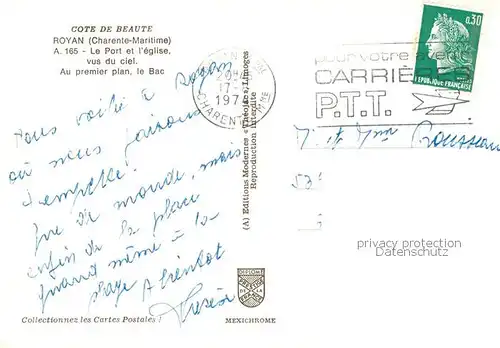 COTE DE BEAUTE
ROYAN (Charente-Maritime)
A. 165 - Le Port et l'église,
vus du ciel.
Au premier plan, le Bac
Nous voilà à Royan
où nous faisons
trempette.
de monde, mais
enfin de la place
quand même à la
plage A bientôt
Collectionnez les Cartes Postales !
MEXICHROME
(A) Editions Modernes «Théojac», Limoges
Reproduction interdite
DIPLOME
PRESTIGE
DE LA
FRANCE
17-
CHARENTE
pour votre avenir
CARRIÈRES
P.T.T.
0,30
REPUBLIQUE FRANÇAISE
M. et Mme Rousseau
53
privacy protection
Datenschutz